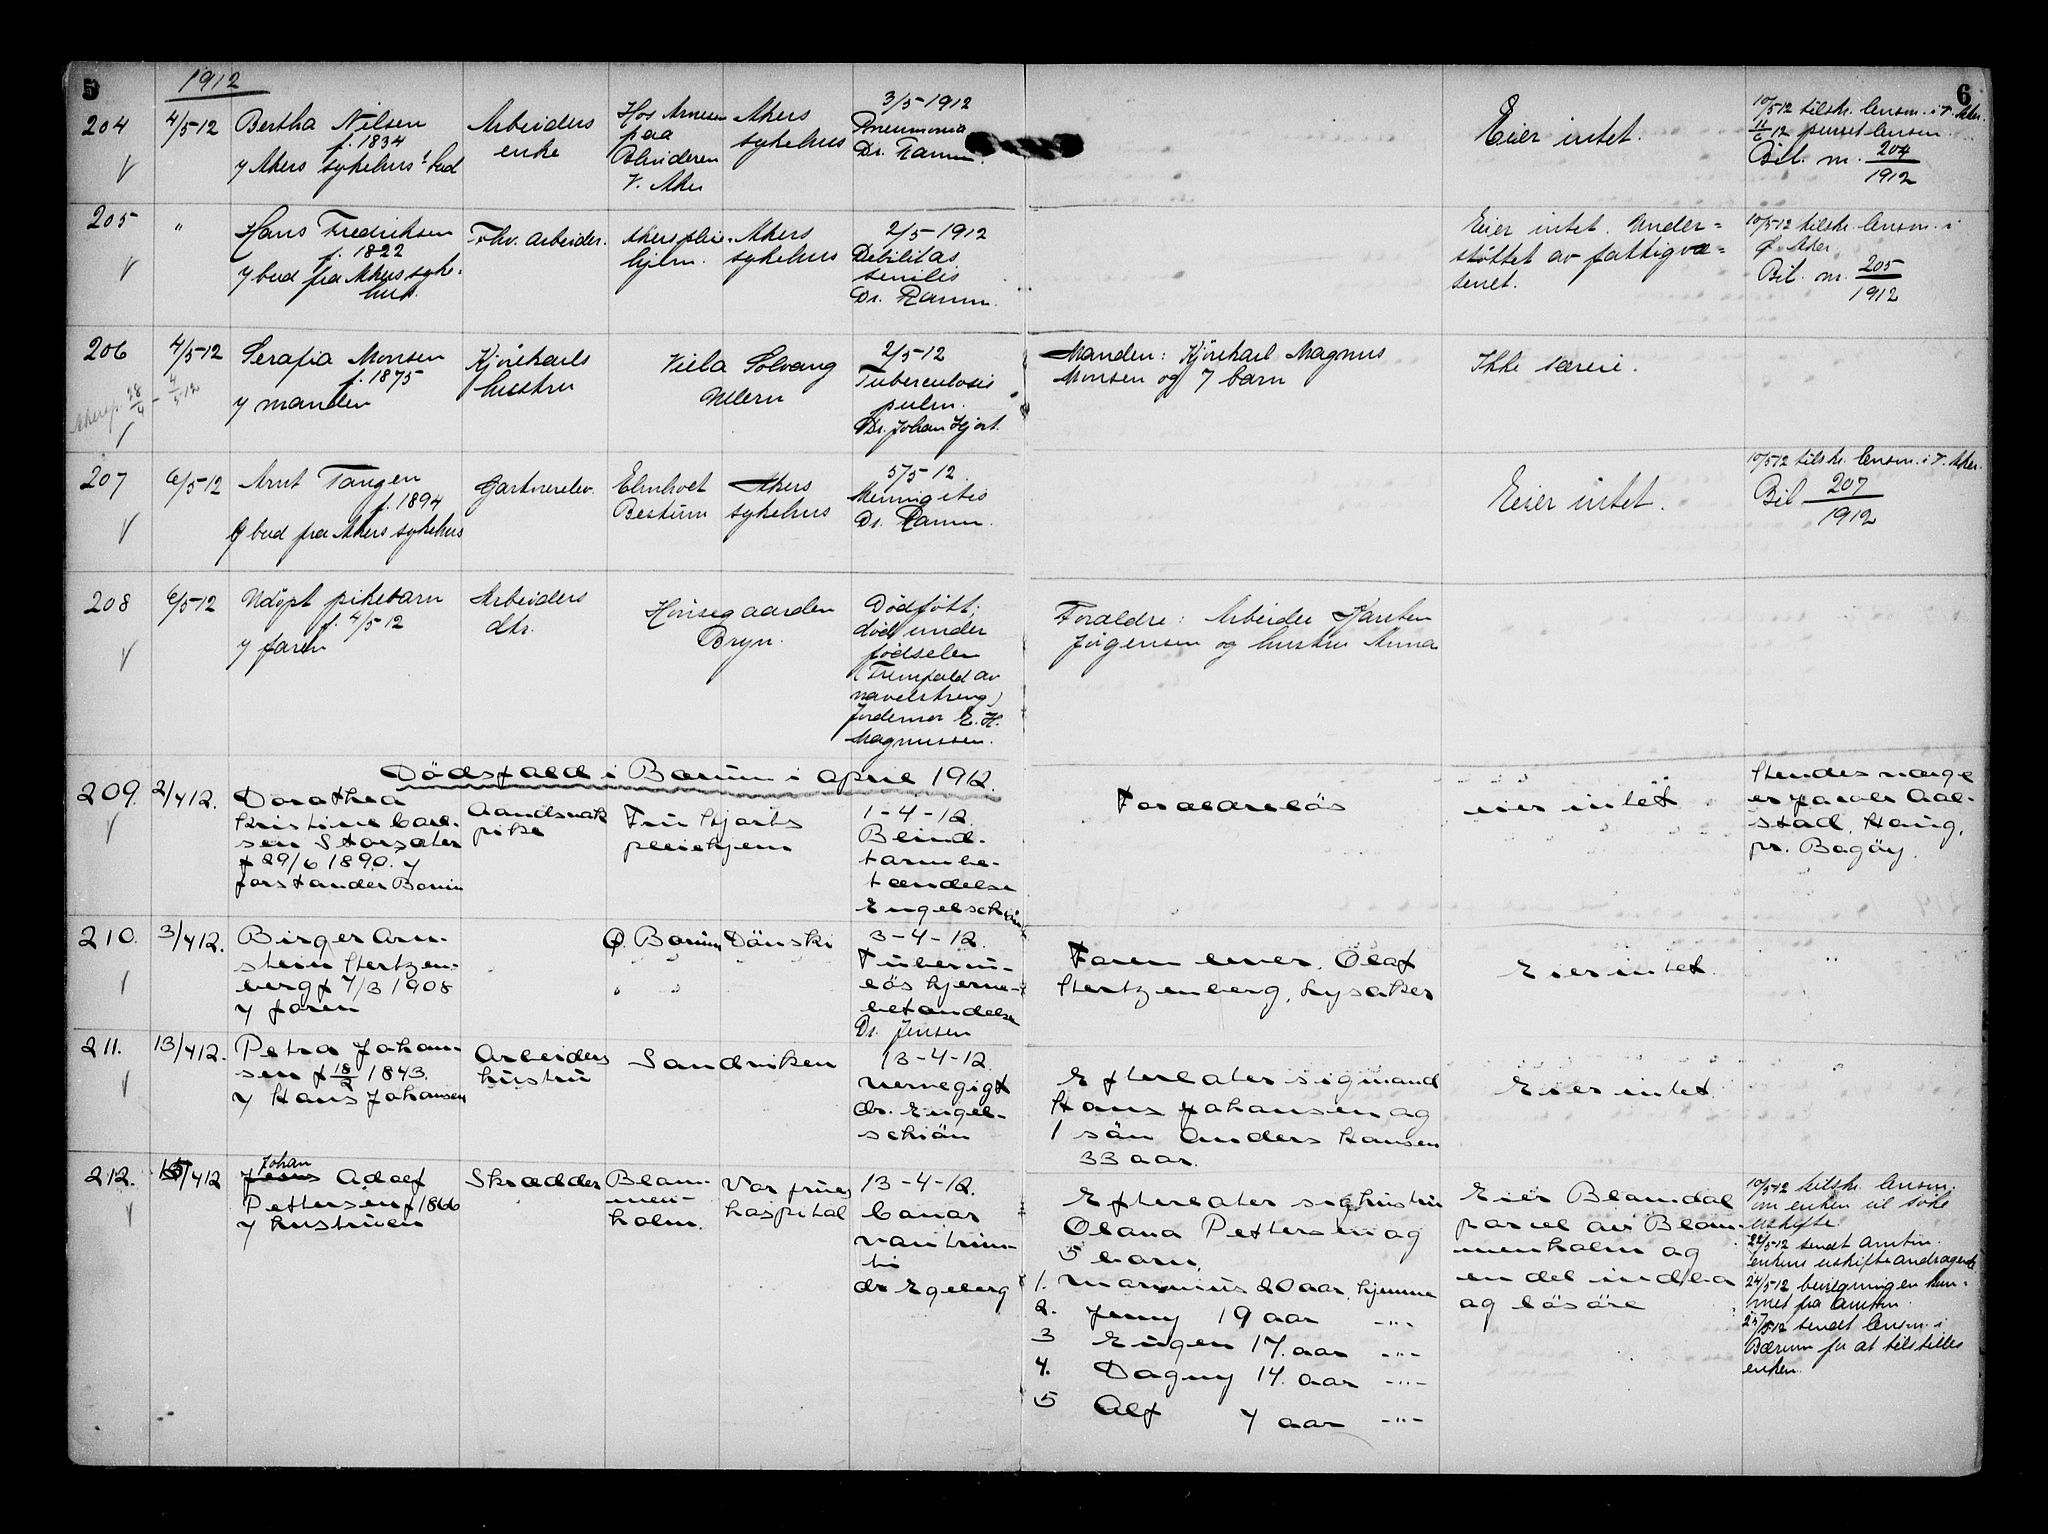 5
1912
6
204
4/5-12
Bertha Nilsen
f. 1834
v/ Akers sykehus' bud
Arbeiders
enke
Hos Arnesen
paa
Blinderen
V. Aker
Akers
sykehus
3/5-1912
Pneumonia
Dr. Ramm.
Eier intet.
10/5 12 tilskr. lensm. i V. Aker.
11/6 12 purret lensm.
Bil. nr. 204/1912
205
"
Hans Fredriksen
f. 1822
v/ bud fra Akers syke-
hus.
Fhv. arbeider.
Akers pleie-
hjem.
Akers
sykehus
2/5-1912
Debilitas
senilis
Dr. Ramm.
Eier intet. Under-
støttet av fattigvæ-
senet.
10/5-12 tilskr. lensm. i
Ø. Aker.
Bil. nr. 205/1912
206
4/5-12
Akersp. 28/4 - 4/5 12
Serafia Monsen
f. 1875
v/ manden
Kjørekarls
hustru
Villa Solvang
Ullern
2/5-12
Tuberculosis
pulm.
Dr. Johan Hjort.
Manden: Kjørekarl Magnus
Monsen og 7 barn
Ikke særeie.
207
6/5-12
Arnt Tangen
f. 1894
v/ bud fra Akers sykehus
Gartnerelev.
Elmhvet
Bestum
Akers
sykehus
5/5-12.
Meningitis
Dr. Ramm.
Eier intet.
10/5 12 tilskr. lensm. i V. Aker.
Bil 207/1912
208
6/5-12
Udøpt pikebarn
f. 4/5-12
v/ faren
Arbeiders
dtr.
Hønsegaarden
Bryn.
Dødfødt;
død under
fødselen
(Fremfald av
navelstreng)
Jordemor E. H.
Magnussen.
Forældre: Arbeider Karsten
Jørgensen og hustru Anna
Dödsfald i Bærum i april 1912.
209.
2/4 12.
Dorathea
Kristine Carl-
sen Storsæter
f 29/6 1890. v
forstander Bærum
Aandssvak
pike
Fru Hjorts
pleiehjem
1-4-12.
Blind-
tarmbe-
tændelse
Engelschiön
Forældrelös
eier intet
Hendes værge
er Jacob Aal-
stad, Haug,
pr. Bagöy.
210.
3/4 12.
Birger Arn-
stein Hertzen-
berg f 7/3 1908
v faren
Ø. Bærum
Dönski
" "
3-4-12.
Tuberku-
lös hjerne-
betændelse
Dr. Jensen
Faren lever. Olaf
Hertzenberg, Lysaker
Eier intet.
"
211.
13/4 12.
Petra Johan-
sen f 18/2 1843.
v Hans Johansen
Arbeiders
hustru
Sandviken
13-4-12.
nervegigt
dr. Engel-
schiön
Efterlater sig mand
Hans Johansen og
1 sön Anders Hansen
33 aar.
Eier intet.
"
212.
15/4 12
Johan
Jens Adolf
Pettersen f 1866
v hustruen
Skrædder
Blom-
men-
holm.
Vor frues
hospital
13-4-12.
Cancer
ventricu-
li
dr Egeberg
Efterlater sig hustru
Olana Pettersen og
5 barn.
1. Marinius 20 aar, hjemme
2. Jenny 19 aar -"-
3 Eugen 17. aar -"-
4. Dagny 14. aar -"-
5 Alf 7 aar -"-
Eier Blomdal
parcel av Blom-
menholm og
en del indbo
og lösöre
10/5-12 tilskr. lensm.
om enken vil söke
uskifte.
22/5-12 sendt amtm.
enkens uskifteandragende
24/5-12 bevilgningen kom-
met fra amtm.
24/5-12 sendt lensm. i
Bærum for at tilstilles
enken.